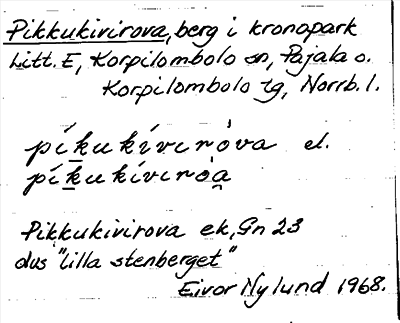 Pikkukivirova, berg i kronopark
Litt. E, Korpilombolo sn, Pajala o.
Korpilombolo tg, Norrb. l.
píkukívirȯva el.
píkukívirȯa̯
Pikkukivirova ek, Gn 23
dvs "lilla stenberget"
Eivor Nylund 1968.